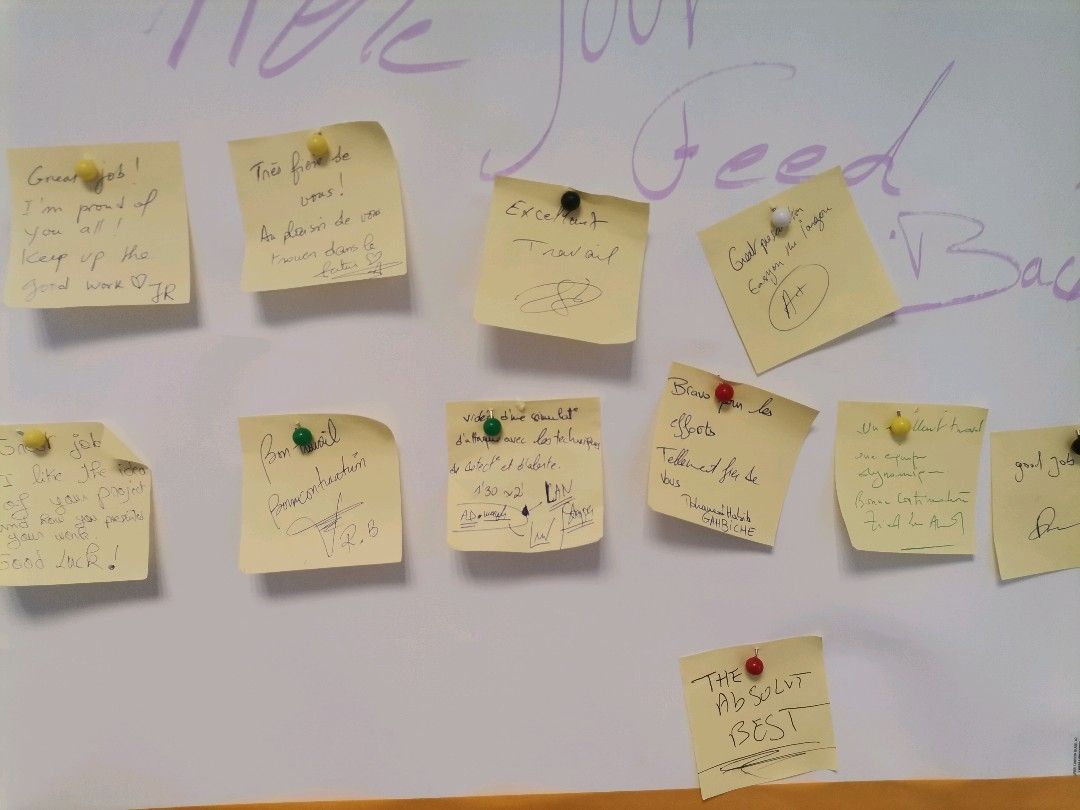 Your
Feed
Back
Great job!
I'm proud of
you all!
Keep up the
good work ♡ JR
Très fière de
vous!
Au plaisir de vous
trouver dans le
futur ♡
Excellent
Travail
Great
A+
Great job
I like the idea
of your project
and how you presented
your work
Good luck!
Bon travail
Bonne continuation
R.B
vidéo d'une simulat°
d'attaque avec les techniques
de détect° et d'alerte.
1'30 ~ 2'
LAN
Bravo pour les
efforts
Tellement fier de
vous
GAHBICHE
Un excellent travail
une equipe
dynamique
Bonne Continuation
good job
THE
AbSOLVT
BEST